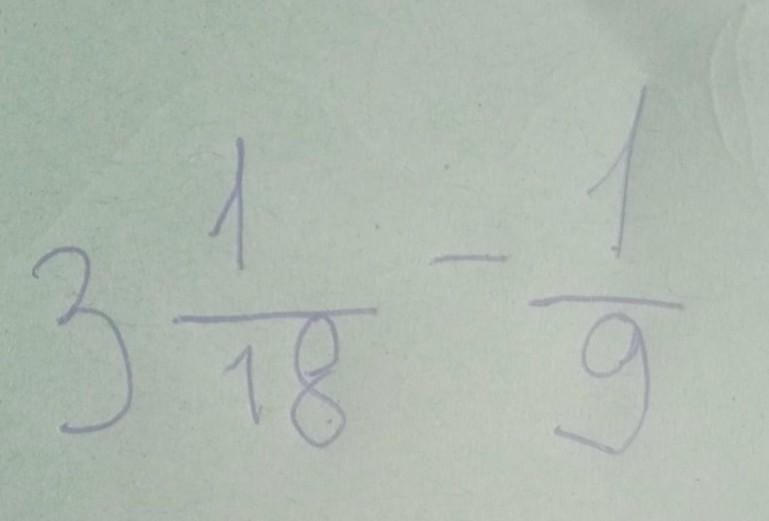 3 1/18 - 1/9